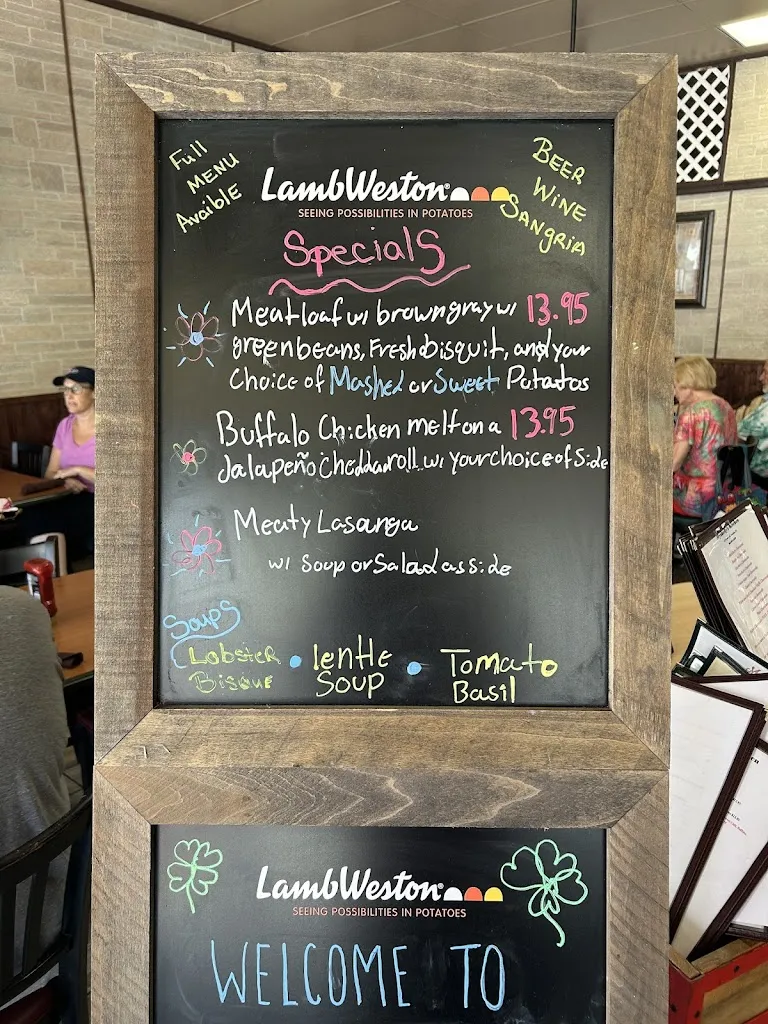 Full
MENU
Avaible
BEER
WINE
SANGRIA
LambWeston®
SEEING POSSIBILITIES IN POTATOES
Specials
Meatloaf w/ brown gray w/ 13.95
green beans, Fresh bisquit, and your
Choice of Mashed or Sweet Potatos
Buffalo Chicken melt on a 13.95
Jalapeño Cheddar roll w/ your choice of side
Meaty Lasanga
w/ Soup or Salad as side
Soups
Lobster
Bisque
lentle
Soup
Tomato
Basil
LambWeston®
SEEING POSSIBILITIES IN POTATOES
WELCOME TO